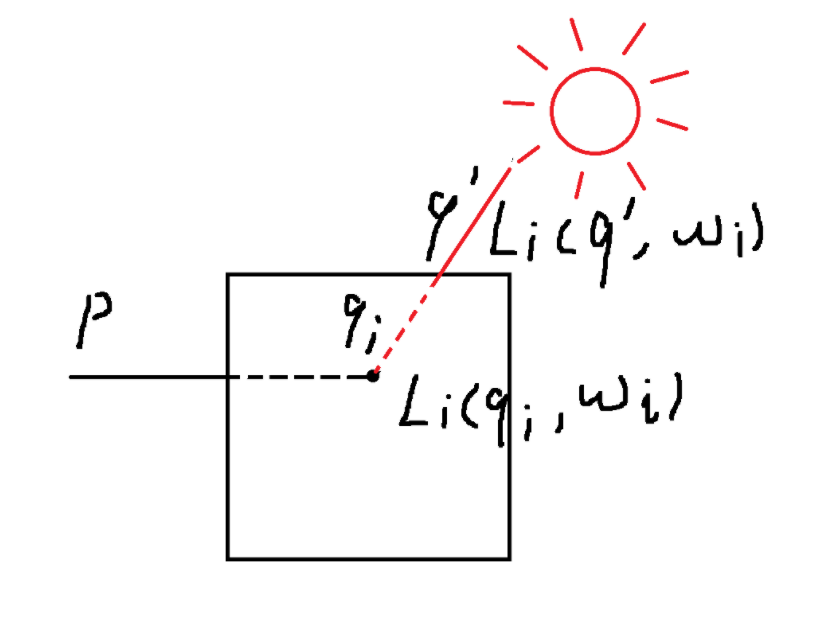 q'
Li(q', wi)
P
qi
Li(qi, wi)